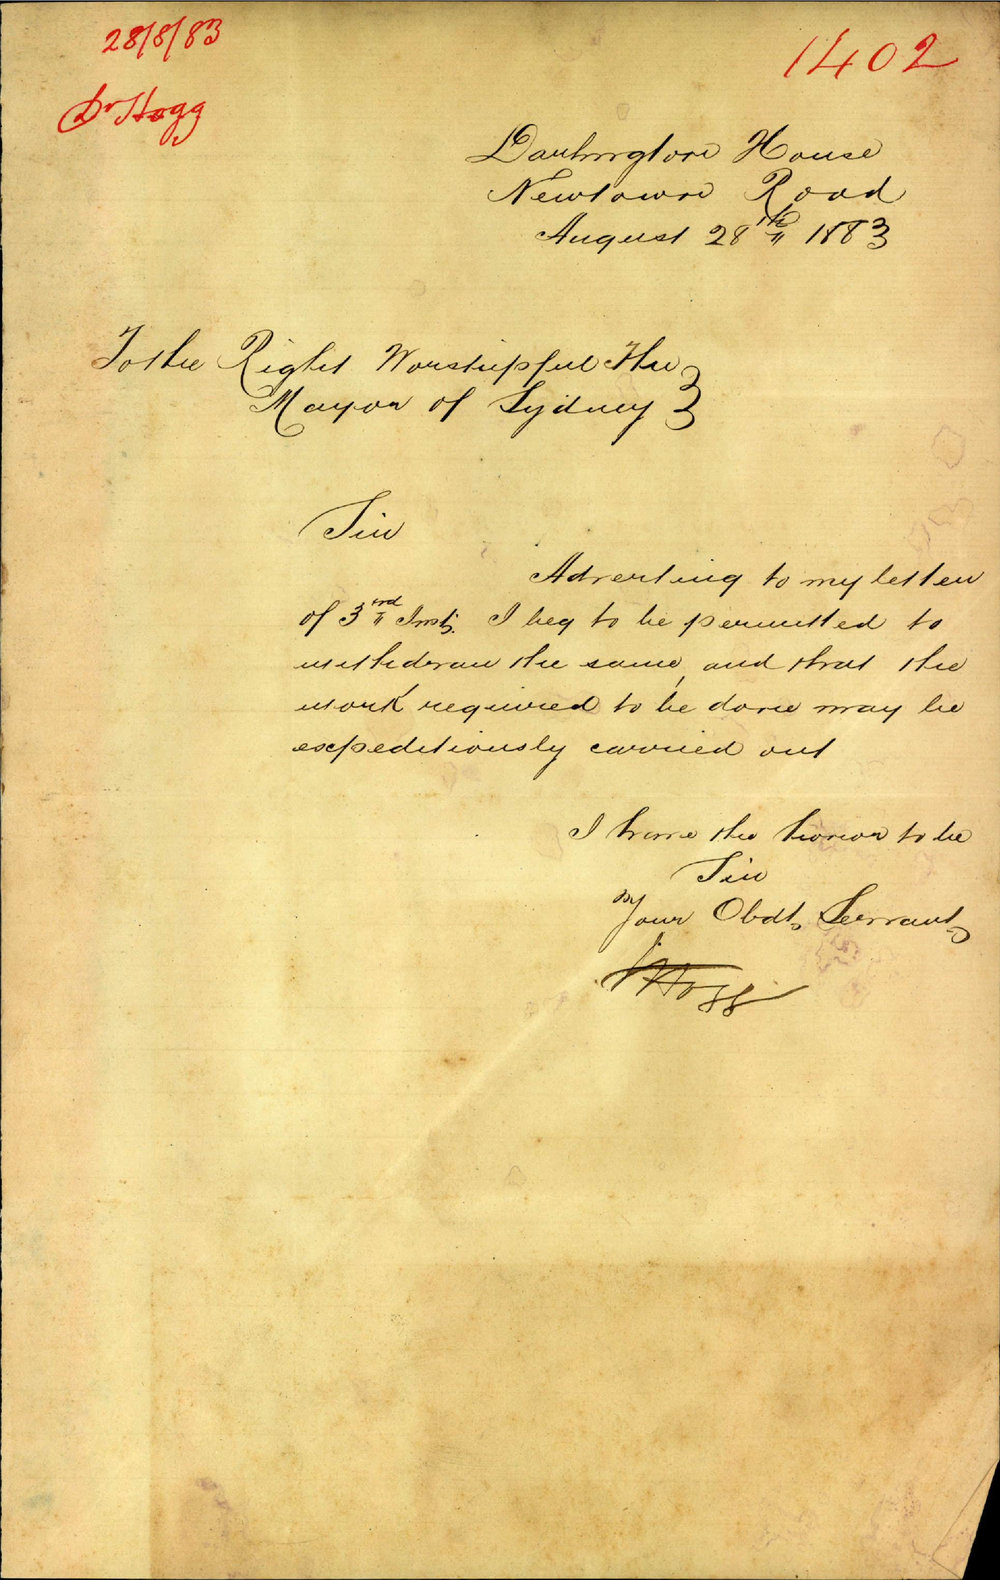 28/8/83
1402
Dr Hogg
Darlington House
Newtown Road
August 28th 1883
To the Right Worshipful The
Mayor of Sydney
Sir
Adverting to my letter
of 3rd Inst. I beg to be permitted to
withdraw the same, and that the
work required to be done may be
expeditiously carried out
I have the honor to be
Sir
Your Obdt Servant
Hogg